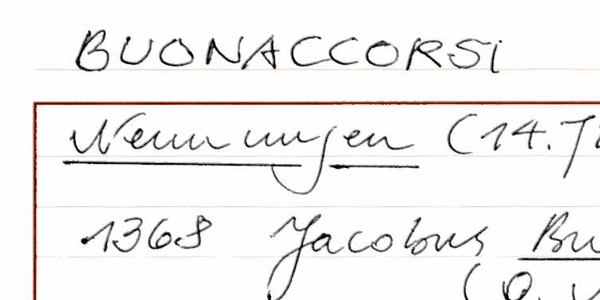 BUONACCORSI
Nennungen (14. J
1368 Jacobus Bu
(Q. V